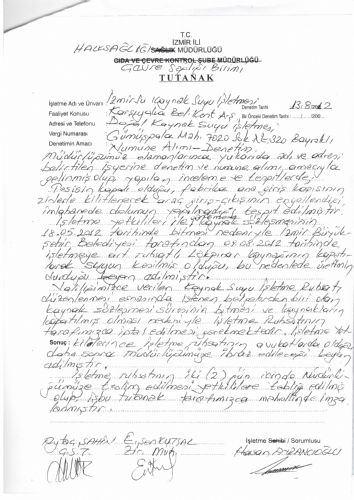 T.C.
İZMİR İLİ
HALK SAĞLIĞI SAĞLIK MÜDÜRLÜĞÜ
GIDA VE ÇEVRE KONTROL ŞUBE MÜDÜRLÜĞÜ
Çevre Sağlığı Birimi
TUTANAK
İşletme Adı ve Ünvanı İzmir Su Kaynak Suyu İşletmesi
Denetim Tarihi 13.8.2012
Faaliyet Konusu Karşıyaka Bel. Kent A.Ş Bir Önceki Denetim Tarihi ..../..../200..
Adresi ve Telefonu Doğal Kaynak Suyu İşletmesi
Vergi Numarası Gümüşpala Mah. 7020 Sok No:320 Bayraklı
Denetimin Amacı Numune Alımı - Denetim
Müdürlüğümüz elemanlarınca, yukarıda adı ve adresi
belirtilen işyerine denetim ve numune alımı amacıyla
gelinmiş olup yapılan inceleme ve tespitlerde;
Tesisin kapalı olduğu, fabrika ana giriş kapısının
zincirle kilitlenerek araç giriş-çıkışının engellendiği,
imlahanede dolumun yapılmadığı tespit edilmiştir.
İşletme yetkilileri ile kaynak sözleşmesinin
18.05.2012 tarihinde bitmesi nedeniyle İzmir Büyük-
şehir Belediyesi tarafından 09.08.2012 tarihinde
işletmeye ait ruhsatlı kaynağının kapatı-
larak suyun kesilmiş olduğu, bu nedenle üretimin
durduğu beyan edilmiştir.
Valiliğimizce verilen Kaynak Suyu İşletme Ruhsatı
düzenlenmesi esnasında istenen belgelerden biri olan
kaynak sözleşmesi süresinin bitmesi ve kaynakların
kapatılmış olması nedeniyle İşletme Ruhsatının
tarafımızca iptal edilmesi gerekmektedir. İşletme Yet-
Sonuç : kililerince işletme ruhsatının avukatlarda olduğu
daha sonra müdürlüğümüze ibraz edileceği beyan
edilmiştir.
İşletme ruhsatının iki (2) gün içinde Müdürlü-
ğümüze teslim edilmesi yetkililere tebliğ edilmiş
olup, işbu tutanak tarafımızca mahallinde imza
lanmıştır.
Aytaç ŞAHİN Ersen KUTSAL
İşletme Sahibi / Sorumlusu
G.S.T. Zir. Müh.
Hasan